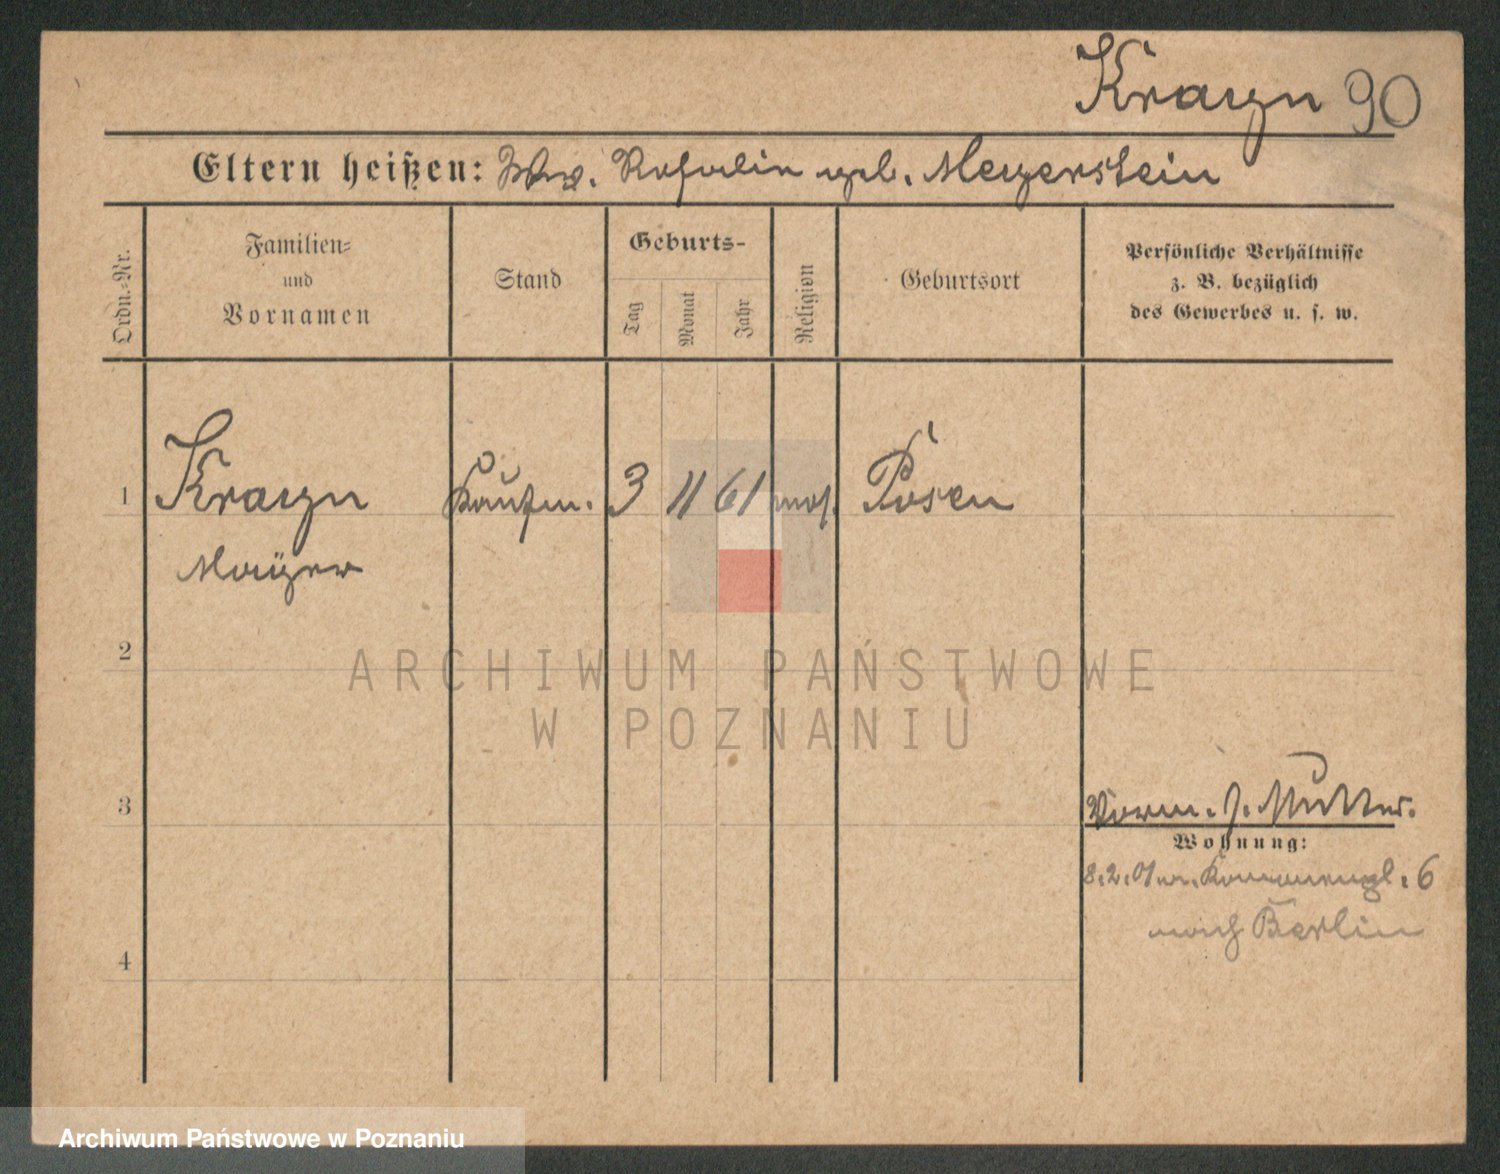 Krayn 90
Eltern heißen: Ww. Rosalin geb. Meyerstein
Ordn.-Nr.
Familien=
und
Vornamen
Stand
Geburts-
Tag
Monat
Jahr
Religion
Geburtsort
Persönliche Verhältnisse
z. B. bezüglich
des Gewerbes u. s. w.
1 Krayn Kaufm. 3 11 61 mos. Posen
Mayer
2
ARCHIWUM PAŃSTWOWE
W POZNANIU
3
Vorm. s. Mutter.
Wohnung:
8.2.01 6
nach Berlin
4
Archiwum Państwowe w Poznaniu